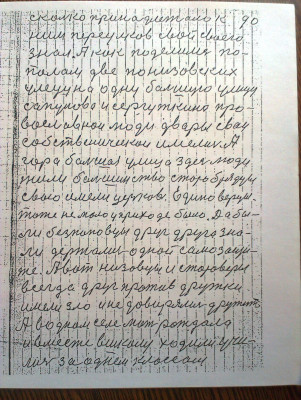 сколко принадлежало к до
ним переулков свой своего
знал. А как поделиш по-
полам две понизовских
улицу на одну балшую улицу
сапулова и сергушкино про-
вославной люди дворы сваи
собственически имелих. А
гора балшая улица здес люди
жили балшинство старобрядцы
свою имели церков. Единоверцы
тоже немного приходе было. Да бы-
ли безпоповцы друг друга зна-
ли держали одной самозащи-
те. А вот низовцы и староверы
всегда друг против дружки
имели зло и не доверяли дружит.
А в одном селе мит рождала
и вместе в школу ходили учи-
лис за однем классом